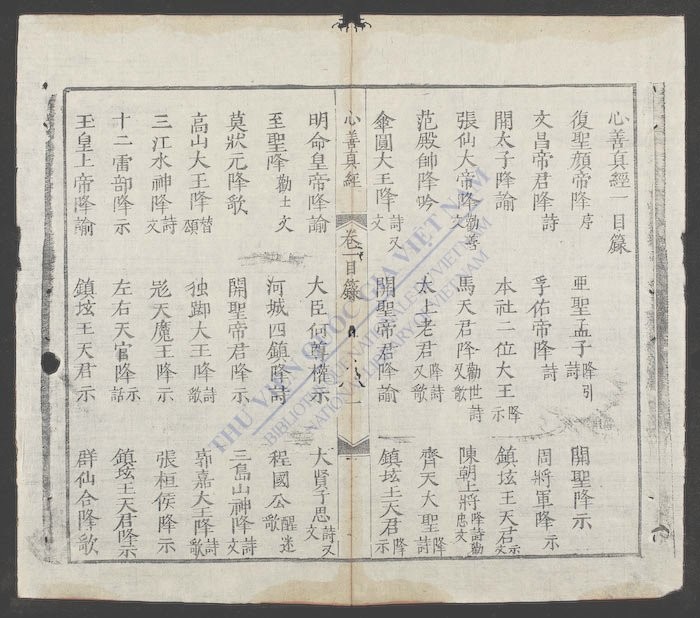 心善真經一目錄
復聖顏帝降序 亜聖孟子降引詩 開聖降示
文昌帝君降詩 孚佑帝降詩 周將軍降示
開太子降諭 本社二位大王降示 鎮坛王天君示文
張仙大帝降勸善文 馬天君降勸世詩又歌 陳朝上將降詩勸忠文
范殿帥降吟 太上老君降詩又歌 齊天大聖降詩
傘圓大王降詩又文 開聖帝君降諭 鎮坛王天君降示
心善真經 卷一目錄 一
明命皇帝降諭 大臣何尊權示 大賢子思詩又文
至聖降勸士文 河城四鎮降詩 程國公醒迷歌
莫狀元降歌 開聖帝君降示 三島山神降詩文
高山大王降替頌 独脚大王降詩歌 郭嘉大王降詩歌
三江水神降詩文 尨天魔王降示 張桓侯降示
十二雷部降示 左右天官降示話 鎮坛王天君降示
玉皇上帝降諭 鎮坛王天君示 群仙合降歌
THƯ VIỆN QUỐC GIA VIỆT NAM
BIBLIOTHÈQUE NATIONALE DU VIETNAM
NATIONAL LIBRARY OF VIETNAM